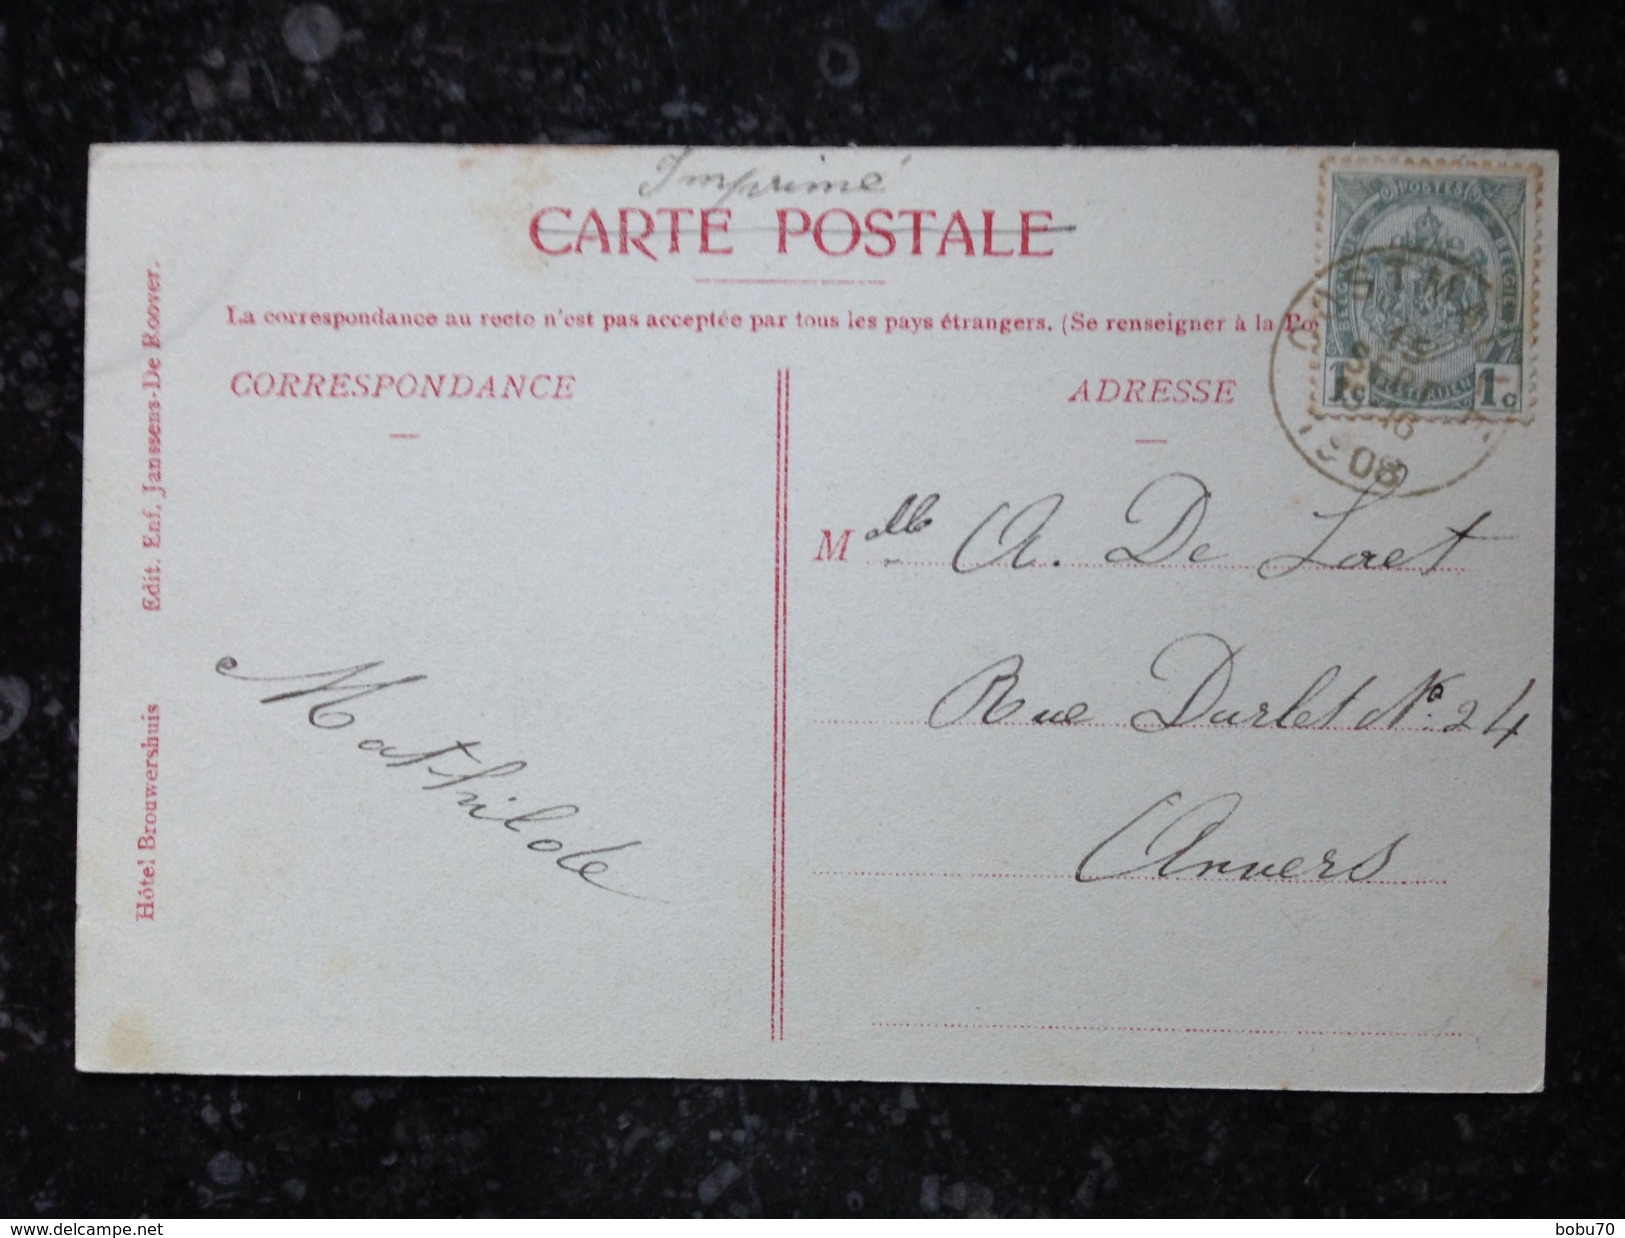 Imprimé
CARTE POSTALE
La correspondance au recto n'est pas acceptée par tous les pays étrangers. (Se renseigner à la Po
CORRESPONDANCE
ADRESSE
POSTES
BELGIQUE
BELGIE
1c 1c
15
SEPT
16
1908
Mathilde
Mlle A. De Laet
Rue Durlet No. 24
Anvers
Hôtel Brouwershuis
Edit. Enf. Janssens-De Roover.
delcampe.net
bobu70